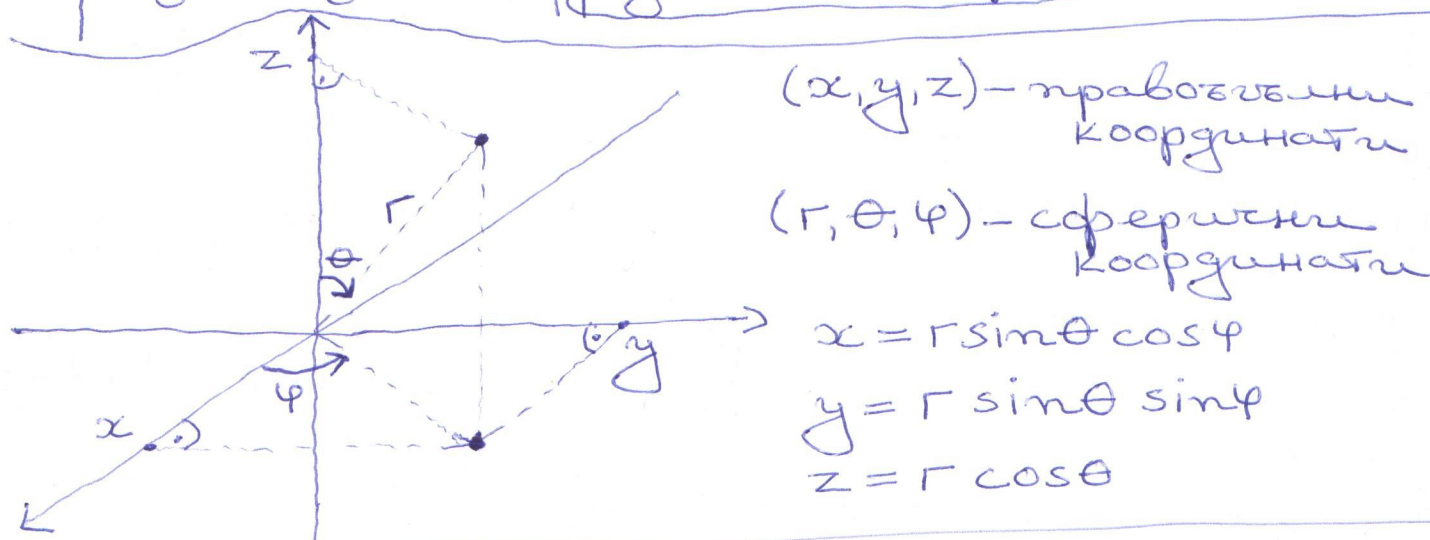 z
(x, y, z) – правоъгълни
координати
r
(r, θ, φ) – сферични
координати
θ
x = r sinθ cosφ
y
φ
y = r sinθ sinφ
x
z = r cosθ